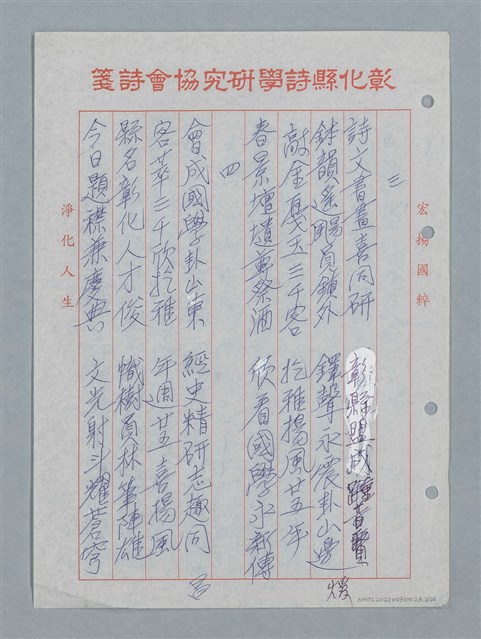 彰化縣詩學研究協會詩箋
宏揚國粹
三
詩文書畫喜同研 彰縣盟成踵昔賢
鉢韻遙賜員嶺外 鐸聲永震卦山邊
敲金戛玉三千客 扢雅揚風廿五年
春景壇壝奠祭酒 欣看國學永新傳
四
會成國學卦山東 經史精研志趣同
客萃三千欣扢雅 年週廿五喜揚風
縣名彰化人才俊 幟樹員林筆陣雄
今日題襟兼慶典 文光射斗耀蒼穹
淨化人生